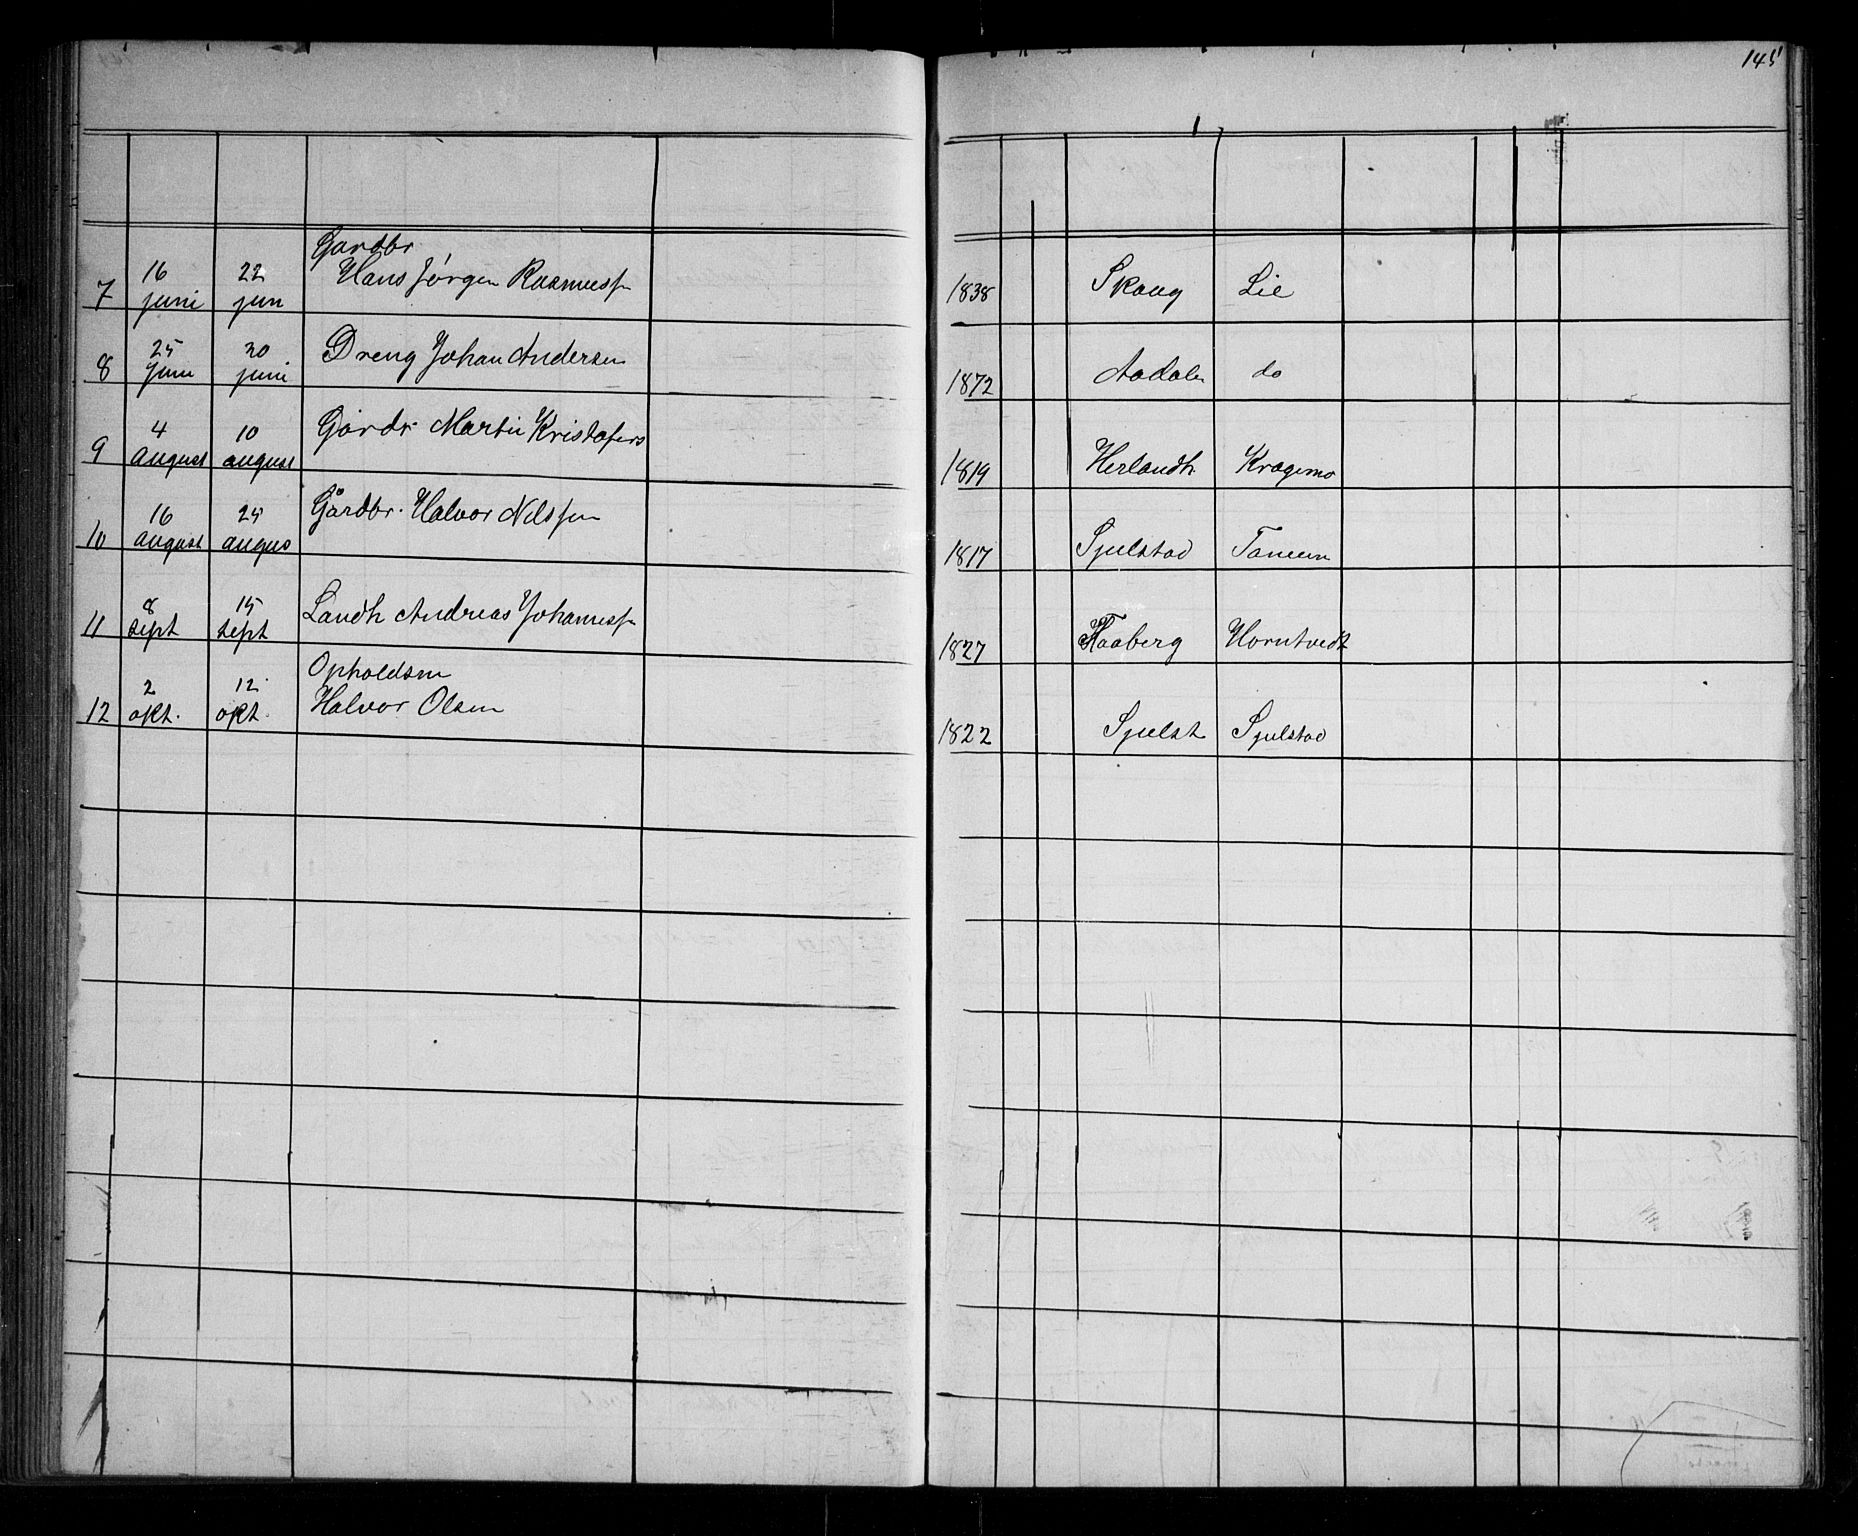 145
Gardbr
7 16 juni 22 jun Hans Jørgen Rasmussen 1838 Skaug Lie
8 25 Juni 30 juni Dreng Johan Andersen 1872 Aadalen do
9 4 August 10 august Gårdr. Martin Kristofers 1819 Herlandh Kragemo
10 16 August 25 augus Gårdbr. Halvor Nilssen 1817 Sjulstad Taneem
11 8 sept 15 sept Landh Andreas Johanness 1827 Faaberg Horntvedt
Opholdsm
12 2 okt. 12 okt. Halvor Olsen 1822 Sjulst Sjulstad